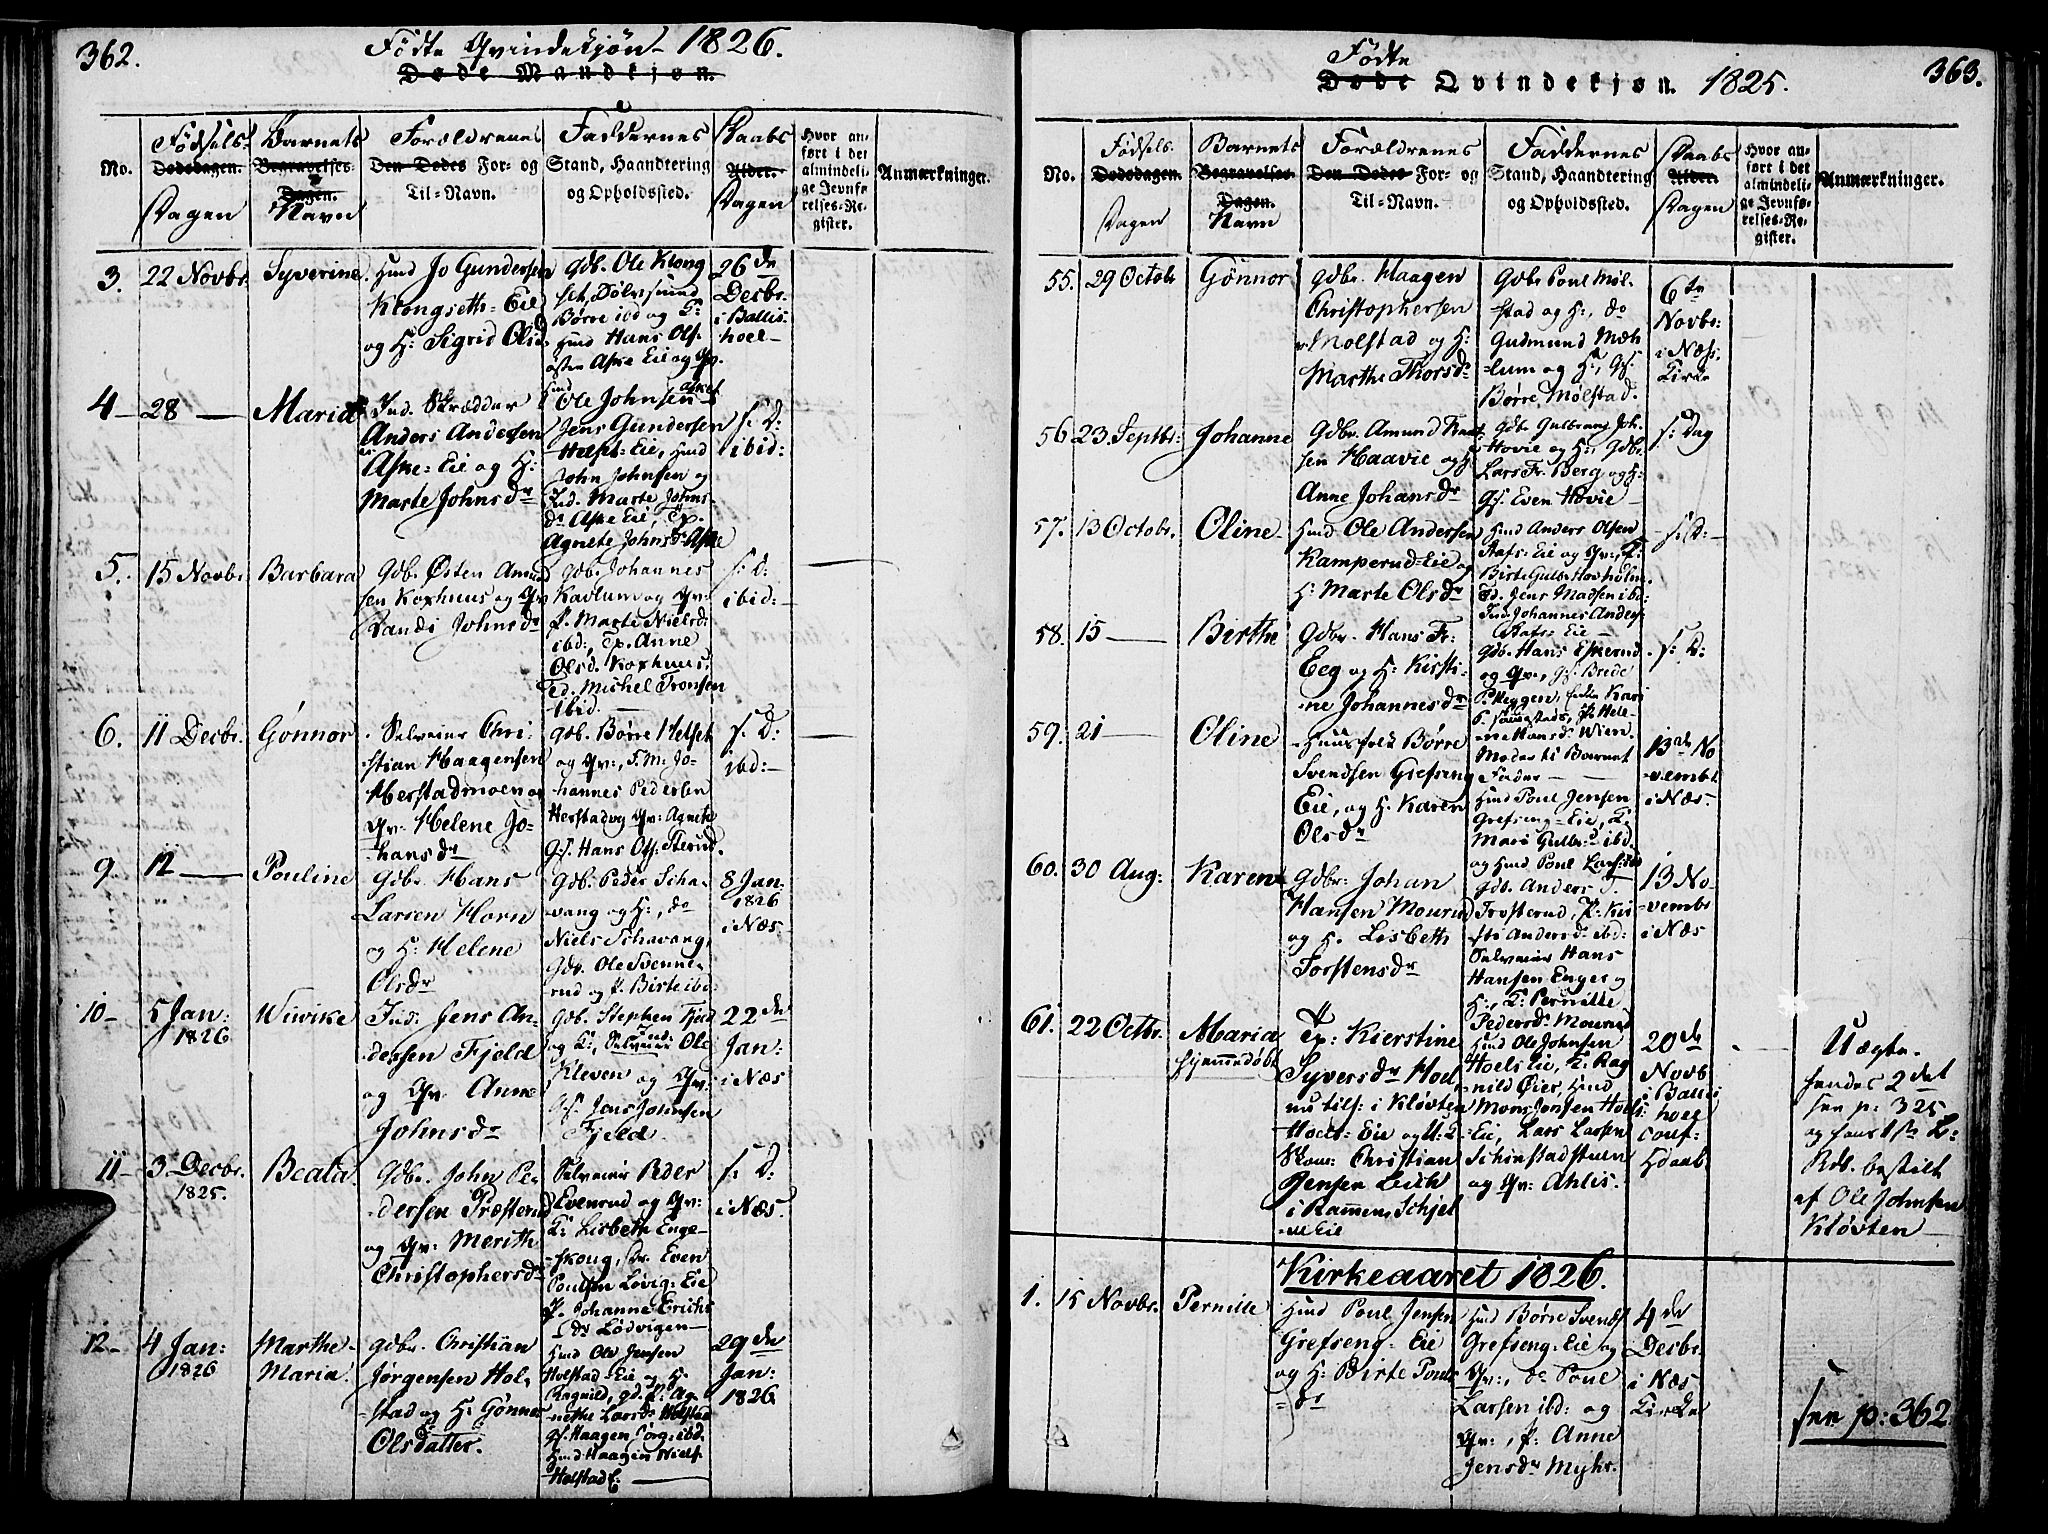 362.
Fødte Qvindekjøn 1826.
Døde Mandkjøn.
No.
Fødsels-
Dødsdagen.
Dagen
Barnets
Begravelses-
Dagen.
Navn
Forældrenes
Den Dødes For- og
Til-Navn.
Faddernes
Stand, Haandtering
og Opholdssted.
Daabs
Alder.
Dagen
Hvor an-
ført i det
almindeli-
ge Jevnfø-
relses-Re-
gister.
Anmærkninger.
3.
22 Novbr.
Syverine.
Huusd Jo Gundersen
Klongseth-Eie
og H: Sigrid Olsd.
Gdb. Ole Klong
Børre ibd og K:
Hans Ols.
østen Aske Eie og Qv.
26de
Decbr.
i Ballis-
hoel
4
28
Maria
Ind. Skrædder
Anders Andersen
Aske-Eie og H:
Marte Johnsdr
Ole Johnsen
Jens Gundersen
John Johnsen og
Ind. Marte Johns-
dr Aske Eie, Tp.
Agnete Johnsd. Aske
s: D:
ibid:
5.
15 Novbr.
Barbara
Gdb. Østen Amund
sen Koxhuus og Qv
Randi Johnsdr
Gdb. Johannes
Kavlum og Qv:
P. Marte Nielsd:
ibd:, Tp. Anne
Olsd. Koxhuus,
Ed. Michel Tronsen
ibid.
s: D:
ibid:
6.
11 Decbr.
Gønnor
Selveier Chri-
stian Haagensen
Herstadmoen og
Qv: Helene Jo-
hansdr
Gdb. Børre Helset
og Qv:, F. M: Jo-
hannes Pedersen
Herstad og Qv: Agnete
Gs. Hans Ols: Sterud.
s: D:
ibd:
9.
12
Pouline
Gdbr. Hans
Larsen Horn
og H: Helene
Olsdr
Gdb. Peder Scha-
vang og H:, do
Niels Schavang,
Gdb. Ole Svenne-
rud og P. Birte ibd:
8 Jan:
1826
i Næs
10
5 Jan:
1826
Wivike
Ind: Jens An-
dersen Fjeld
og Qv. Anne
Johnsdr
Gdb. Stephen Fjeld
og K:, Selveier Ole
Kleven og Qv:
Gs. Jens Johnsen
Fjeld.
22de
Jan:
i Næs
11
3 Decbr.
1825.
Beata
Gdb. John Pe-
dersen Præsterud
og Qv: Merith
Christophersdr
Selveier Peder
Evenrud og Qv:
K: Lisbeth Enge-
skoug, Dr. Even
Poulsen Løvig: Eie
P. Johanne Erichs
dr Lødvigen
s: D:
i Næs.
12
4 Jan:
1826
Marthe
Maria.
Gdbr. Christian
Jørgensen Hol-
stad og H: Gønner
Olsdatter.
Huusd Ole Jensen
Holstad-Eie og H:
Ragnild, gd. P: Ag-
nethe Larsdr Holstad
Gs. Haagen Jørg: ibd.
Huusd Haagen Niels.
Holstad E.
29de
Jan:
1826
363.
Fødte
Døde Qvindekjøn. 1825.
No.
Fødsels
Dødsdagen.
Dagen
Barnets
Begravelses-
Dagen.
Navn
Forældrenes
Den Dødes For- og
Til-Navn.
Faddernes
Stand, Haandtering
og Opholdssted.
Daabs
Alder.
Dagen
Hvor an-
ført i det
almindeli-
ge Jevnfø-
relses-Re-
gister.
Anmærkninger.
55.
29 Octobr
Gønnor
Gdbr. Haagen
Christophersen
Molstad og H:
Marthe Thorsdr
Gdbr Poul Mol-
stad og H:, do
Gudmund Mæh-
lum og H:, Gs.
Børre Mølstad.
6te
Novbr:
i Næs
Kirke
56
23 Septbr:
Johanne
Gdbr. Amund Knut
sen Haavie og H
Anne Johansdr
Gdbr Gulbrand Joh.
Hovie og H:, Gdbr
Lars Fr. Berg og H:
Gs. Even Hovie
s: Dag
57.
13 Octobr.
Oline
Huusd Ole Andersen
Kamperud-Eie og
H: Marte Olsdr
Huusd Anders Olsen
Birte Gulbr Hovholm
Ed. Jens Madsen ibd:
Ind. Johannes Anders
s: D:
58.
15
Birthe
Gdbr. Hans Fr:
Eeg og H: Kirsti-
ne Johannesdr
Gdb. Hans Eskerud
og Qv:, Gs. Brede
Moder til Barnet
Fader
s: D:
59.
21
Oline
Huusfolk Børre
Svendsen Grefseng
Eie, og H. Karen
Olsdr
Huusd Poul Jensen
Grefseng-Eie, K:
Mari Gulbr:d ibd.
og Huusd Poul Lars: ibd
13de No
vembr.
i Næs.
60.
30 Aug:
Karen
Gdbr. Johan
Hansen Mourud
og H. Lisbeth
Torstensdr
Gdb. Anders J.
Trosterud, P: Kir-
sti Andersdr ibd:
Selveier Hans
Hansen Enger og
H:, K: Pernille
Pedersdr Mourud
13 No-
vembr
i Næs
61.
22 Octbr.
Maria
hjemmedøbt
Tp: Kierstine
Syversdr Hoel
nu tils: i Kløvten
Hoels-Eie og U: K:
Skom: Christian
Jensen Leich
i Rammen, Schjel
Eie
Huusd Ole Johnsen
Hoels Eie, K: Rag
nild Øier, Huusd
Mons Jensen Hoels
Eie, Lars Larsen
Schinstadstuen
og Qv: Ahlis.
20de
Novb
i Ballis
hoel
conf:
Hdaab.
Uægte.
hendes 2det
see p: 325
og hans 1ste L:
Rdb. bestilt
af Ole Johnsen
Kløvten
Kirkeaaret 1826.
1.
15 Novbr.
Pernille
Huusd Poul Jensen
Grefseng-Eie
og H: Birte Pouls
dr
Huusd Børre Svends
Grefseng-Eie og
Qv:, do Poul
Larsen ibd: og
Qv:, P: Anne
Jensdr Myhr.
4de
Decbr.
i Næs
Kirke
see p: 362